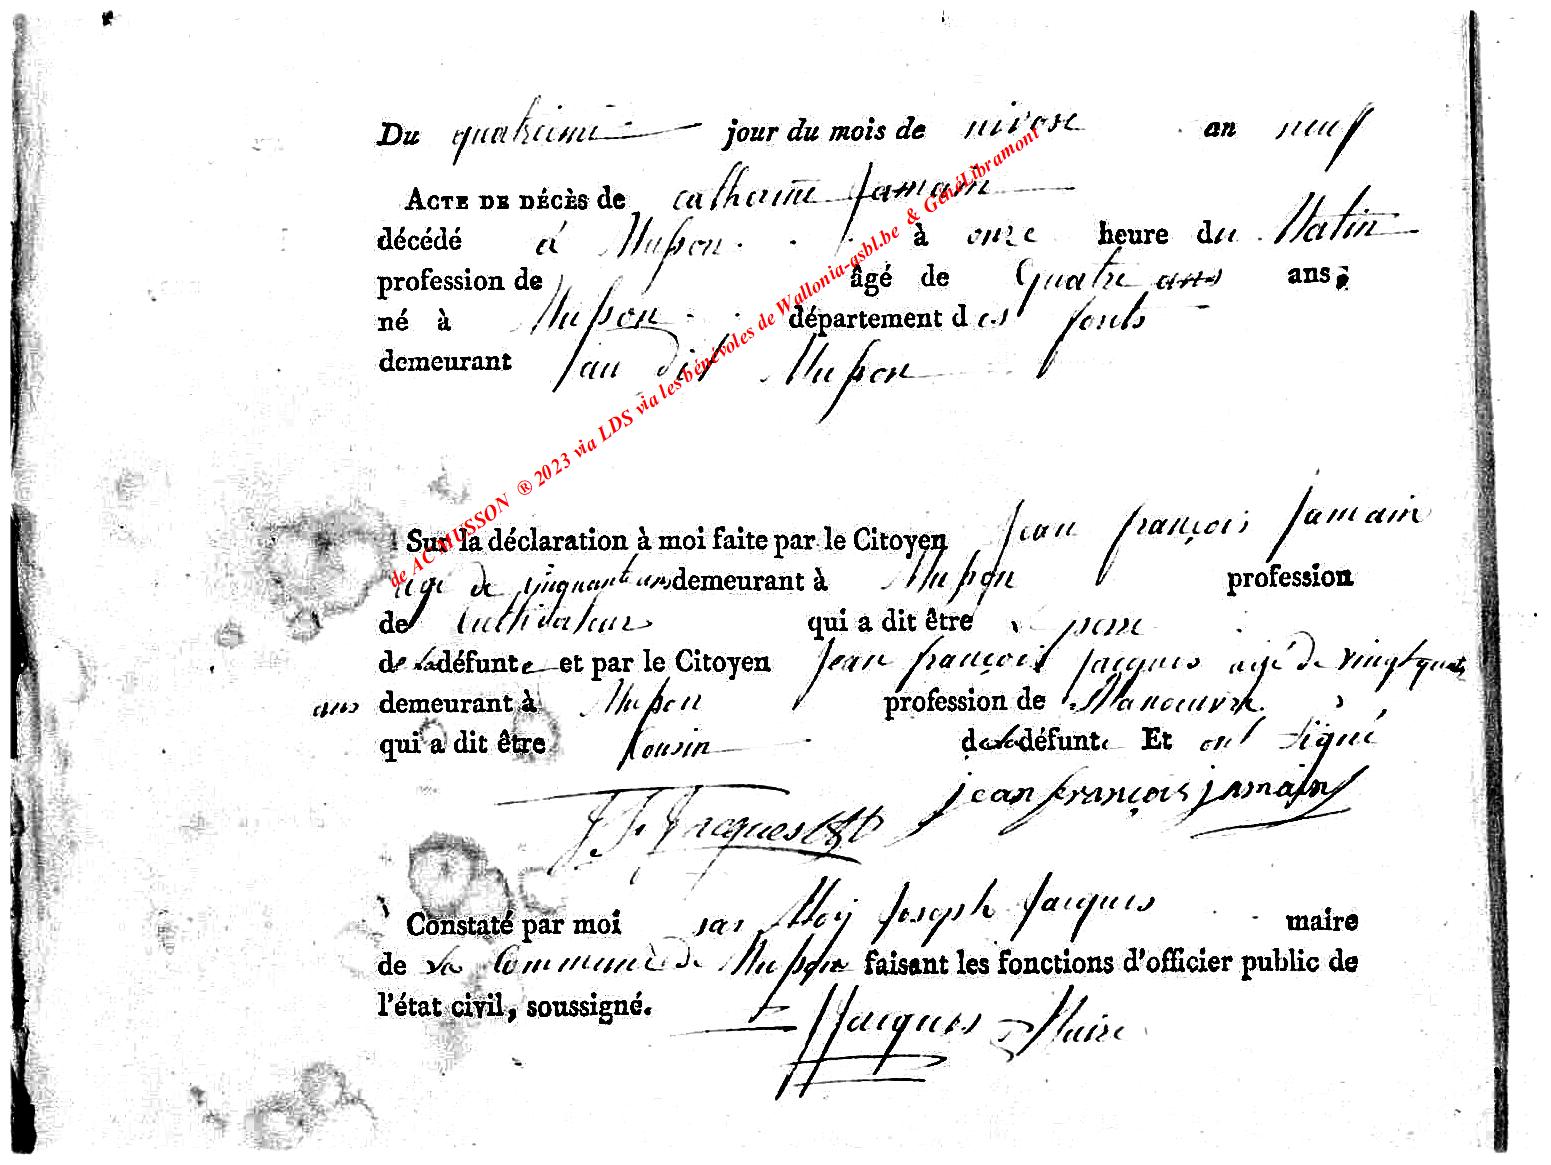 Du quatrieme jour du mois de nivose an neuf
ACTE DE DÉCÈS de catherine Jamain
décédé à Musson à onze heure du Matin
profession de âgé de quatre ans ans;
né à Musson département des forets
demeurant au dit Musson
Sur la déclaration à moi faite par le Citoyen Jean françois Jamain
agé de cinquante ans demeurant à Musson profession
de Cultivateur qui a dit être pere
de la défunte et par le Citoyen Jean françois Jacques agé de vingt quatre
ans demeurant à Musson profession de Manoeuvre
qui a dit être Cousin de la défunte Et ont signé
jean françois jamain
J F Jacques
Constaté par moi Joseph Jacques maire
de la Commune de Musson faisant les fonctions d'officier public de
l'état civil, soussigné.
Jacques Maire
de AC MUSSON ® 2023 via LDS via les bénévoles de Wallonia-asbl.be & GénéLibramont